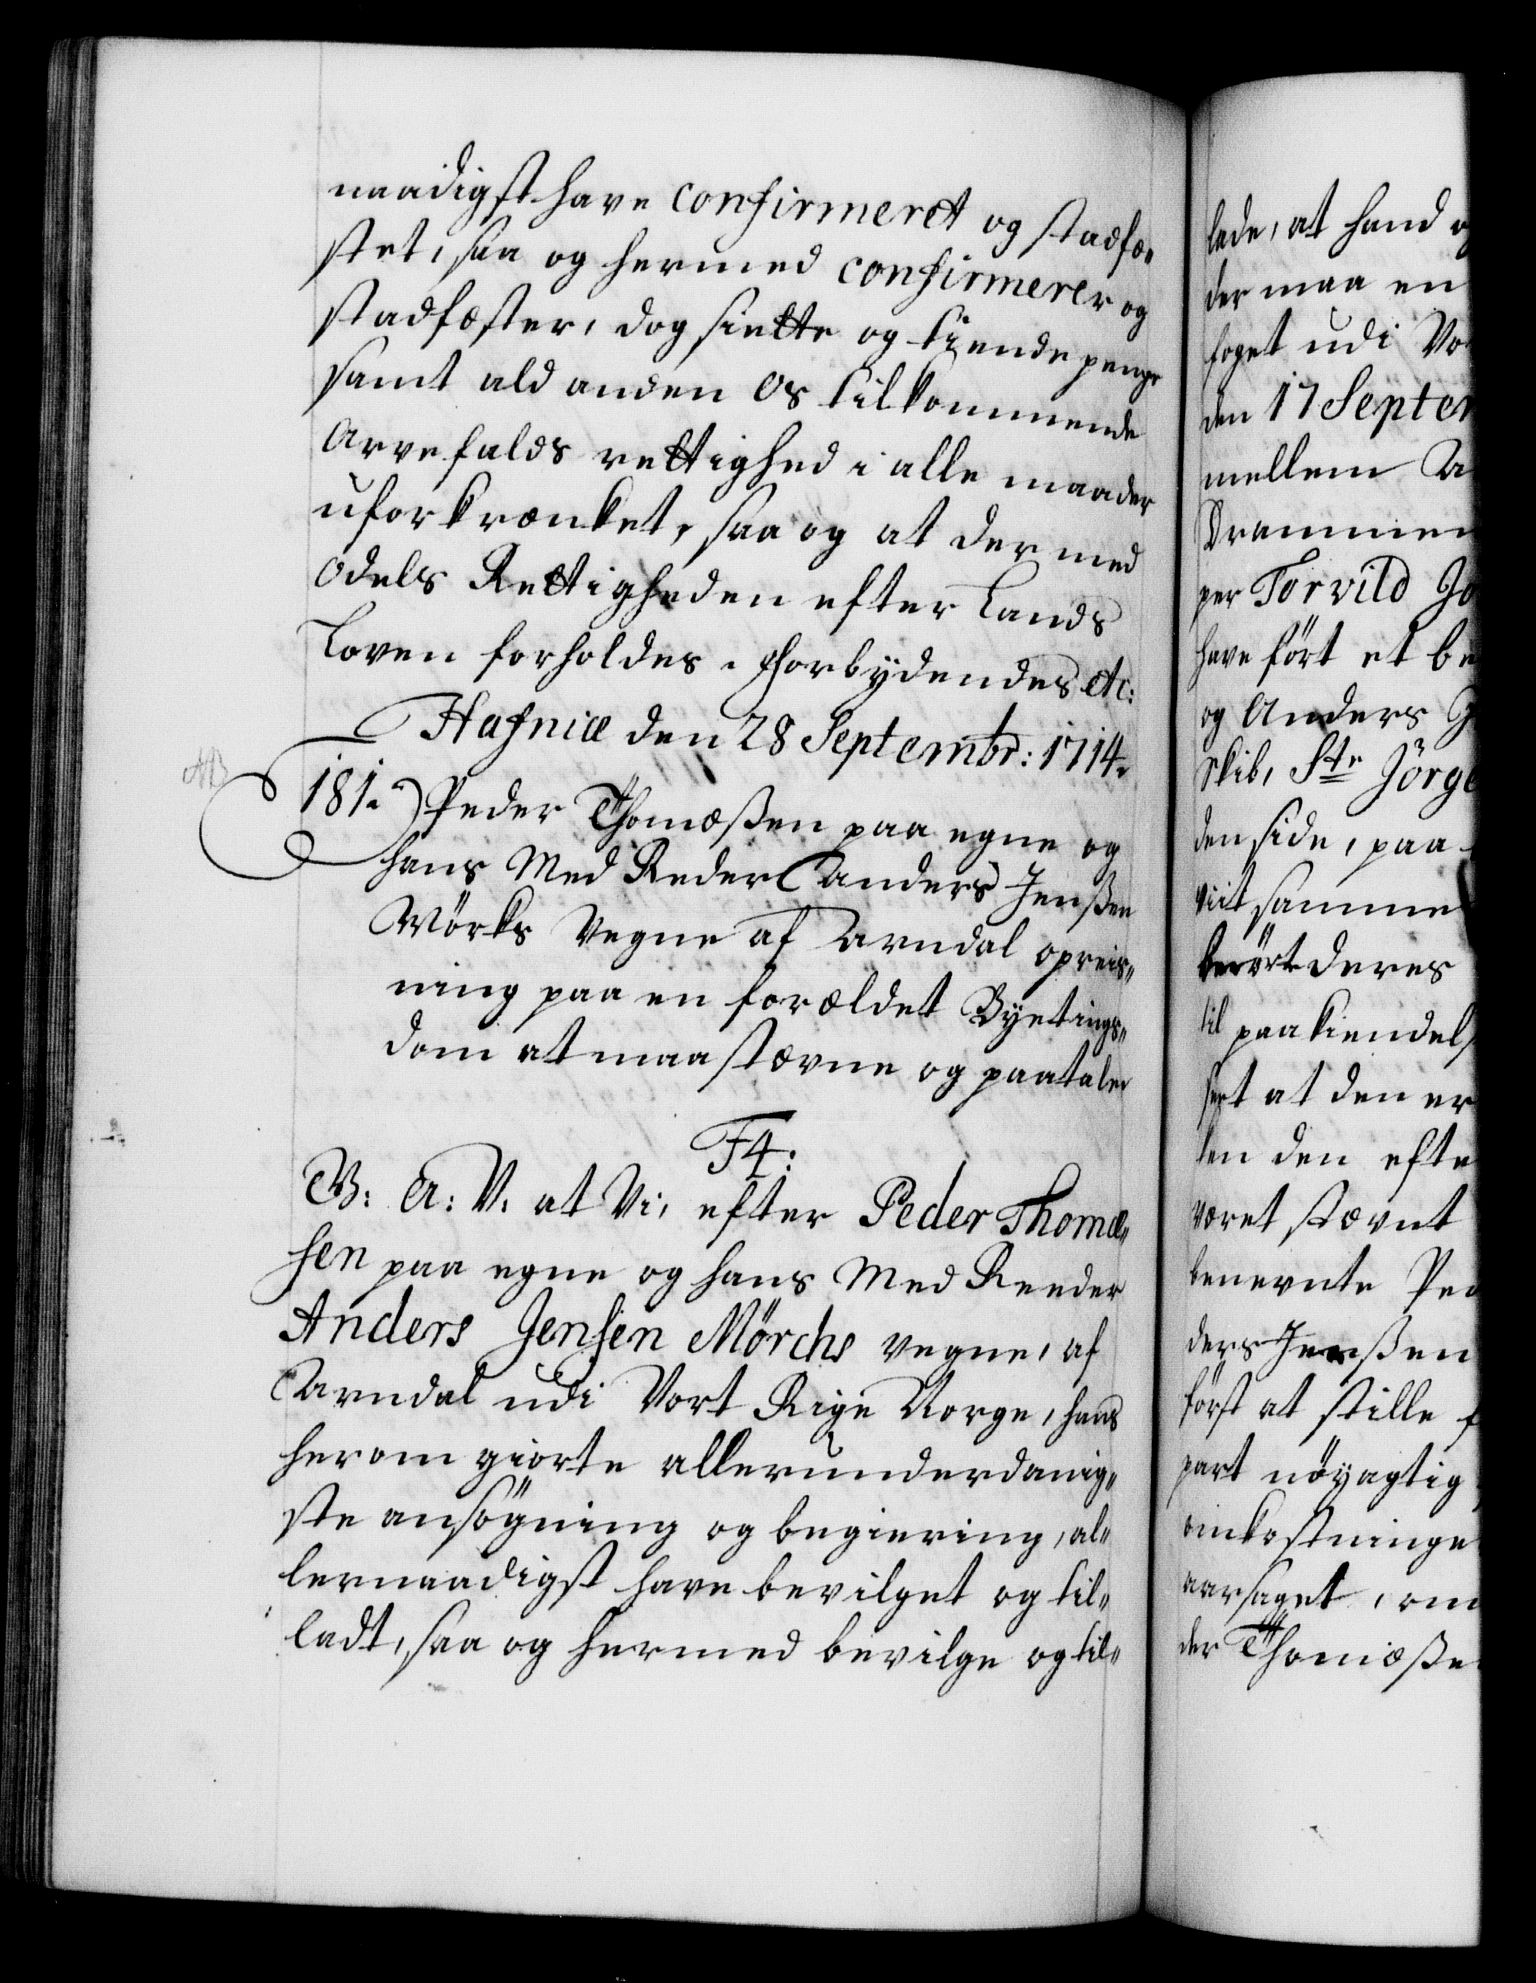 naadigst have confirmeret og stadfæ„
stet, saa og hermed confirmerer og
stadfæster, dog siette og tiende penge
samt ald anden Os tilkommende
Arvefalds rettighed i alle maader
uforkrænket, saa og at der med
Odels Rettigheden efter Lands
Loven forholdes. Forbydendes etc:
Hafniæ den 28 Septembr: 1714.
181.) Peder Thomæßen paa egne og
hans Med Reder Anders Jenßen
Mörks Vegne af Arndal opreis„
ning paa en forældet Byetings„
dom at maa stævne og paatale
F4:
G: A: V: at Vi, efter Peder Thomæ„
sen paa egne og hans Med Reeder
Anders Jensen Mörchs vegne, af
Arndal udi Vort Rige Norge, hans
herom giorte allerunderdanig„
ste ansögning og begiering, al„
lernaadigst have bevilget og til„
ladt, saa og hermed bevilge og til„
lade, at hand og
der maa en
foget udi Vo
den 17 Septem
mellem A
Drammen
per Torvild Jo
have fört et be
og Anders J
Skib, Ste Jörge
den side, paa
viit samme
berört deres
til paakiendels
sert at den er
len den efte
været stævnt
benevnte Ped
ders Jenßen
först at stille f
part nöyagtig
omkostninge
aarsaget, om
der Thomæße